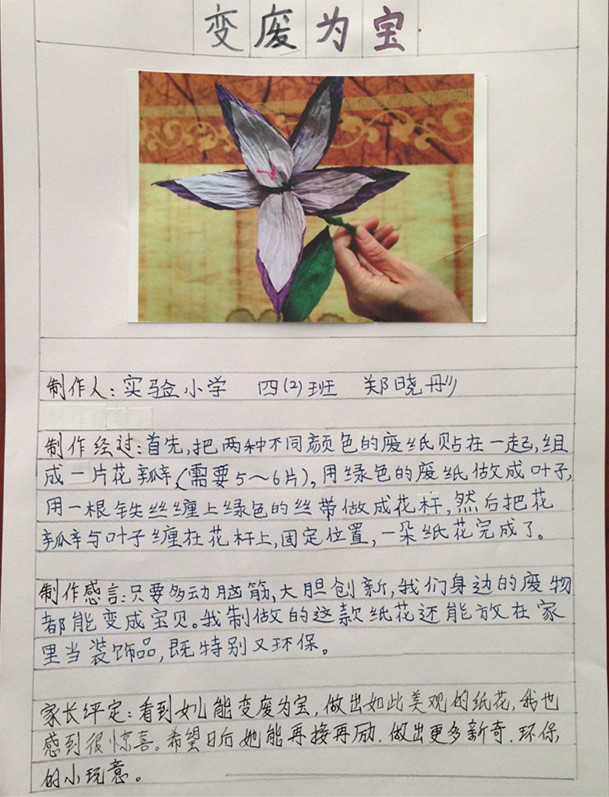 变废为宝
制作人：实验小学 四(2)班 郑晓彤
制作经过：首先，把两种不同颜色的废纸贴在一起，组
成一片花瓣（需要5～6片），用绿色的废纸做成叶子，
用一根铁丝缠上绿色的丝带做成花杆，然后把花
瓣与叶子缠在花杆上，固定位置，一朵纸花完成了。
制作感言：只要多动脑筋，大胆创新，我们身边的废物
都能变成宝贝。我制做的这款纸花还能放在家
里当装饰品，既特别又环保。
家长评定：看到女儿能变废为宝，做出如此美观的纸花，我也
感到很惊喜。希望日后她能再接再励．做出更多新奇．环保
的小玩意。